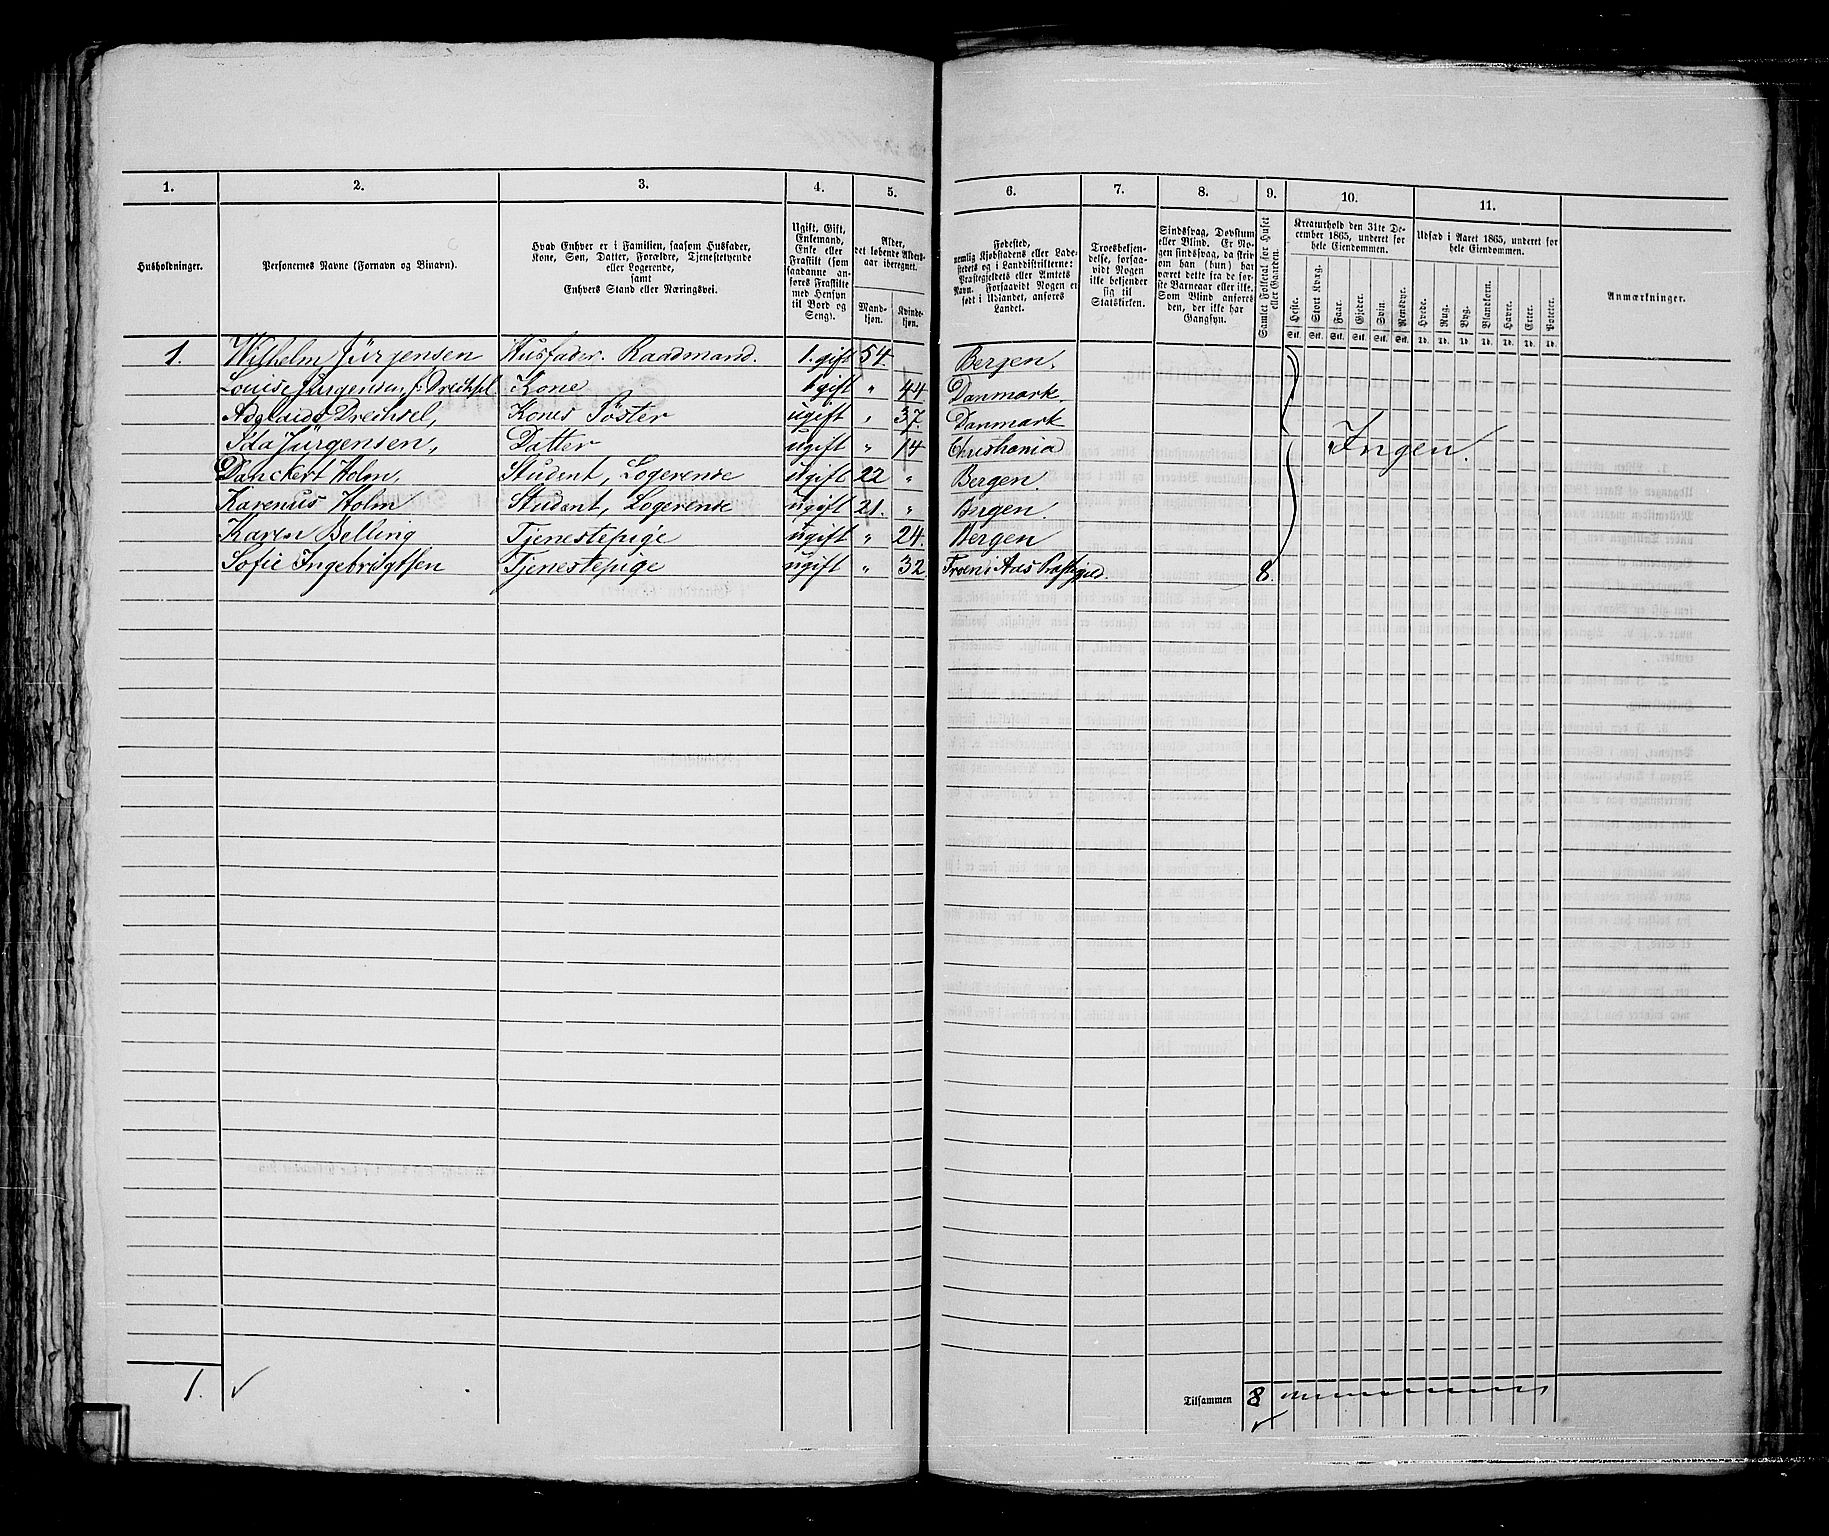 1. 2. 3. 4. 5. 6. 7. 8. 9. 10. 11.
Husholdninger.
Personernes Navne (Fornavn og Binavn).
Hvad Enhver er i Familien, saasom Husfader,
Kone, Søn, Datter, Forældre, Tjenestetyende
eller Logerende,
samt
Enhvers Stand eller Næringsvei.
Ugift, Gift,
Enkemand,
Enke eller
Fraskilt (som
saadanne an-
føres Fraskilte
med Hensyn
til Bord og
Seng).
Alder,
det løbende Alders-
aar iberegnet.
Mand-
kjøn.
Kvinde-
kjøn.
Fødested,
nemlig Kjøbstadens eller Lade-
stedets og i Landdistrikterne:
Præstegjeldets eller Amtets
Navn. Forsaavidt Nogen er
født i Udlandet, anføres
Landet.
Troesbekjen-
delse, forsaa-
vidt Nogen
ikke bekjender
sig til
Statskirken.
Sindssvag, Døvstum
eller Blind. Er No-
gen sindssvag, da skriv
om han (hun) har
været dette fra de før-
ste Barneaar eller ikke.
Som Blind anføres
den, der ikke har
Gangsyn.
Samlet Folketal for Huset
eller Gaarden.
Kreaturhold den 31te De-
cember 1865, underet for
hele Eiendommen.
Heste. Stort Kvæg. Faar. Gjeder. Svin. Rensdyr.
Stk. Stk. Stk. Stk. Stk. Stk.
Udsæd i Aaret 1865, underet for
hele Eiendommen.
Hvede. Rug. Byg. Blandkorn. Havre. Erter. Poteter.
Td. Td. Td. Td. Td. Td. Td.
Anmærkninger.
1. Wilhelm Jürgensen Husfader. Raadmand. 1. gift 54. Bergen.
Louise Jürgensen f: Drechsel Kone gift " 44. Danmark.
Drechsel, Kones Søster ugift " 37. Danmark
Ida Jürgensen, Datter ugift " 14 Christiania
Danckert Holm, Student, Logerende ugift 22 " Bergen
Karenus Holm Student, Logerende ugift 21. " Bergen.
Karen Belling Tjenestepige ugift " 24. Bergen
Sofie Ingebrigtsen Tjenestepige ugift " 32 8.
Ingen.
1. ✓
Tilsammen 8 " " " " " " " " " " " " "
✓